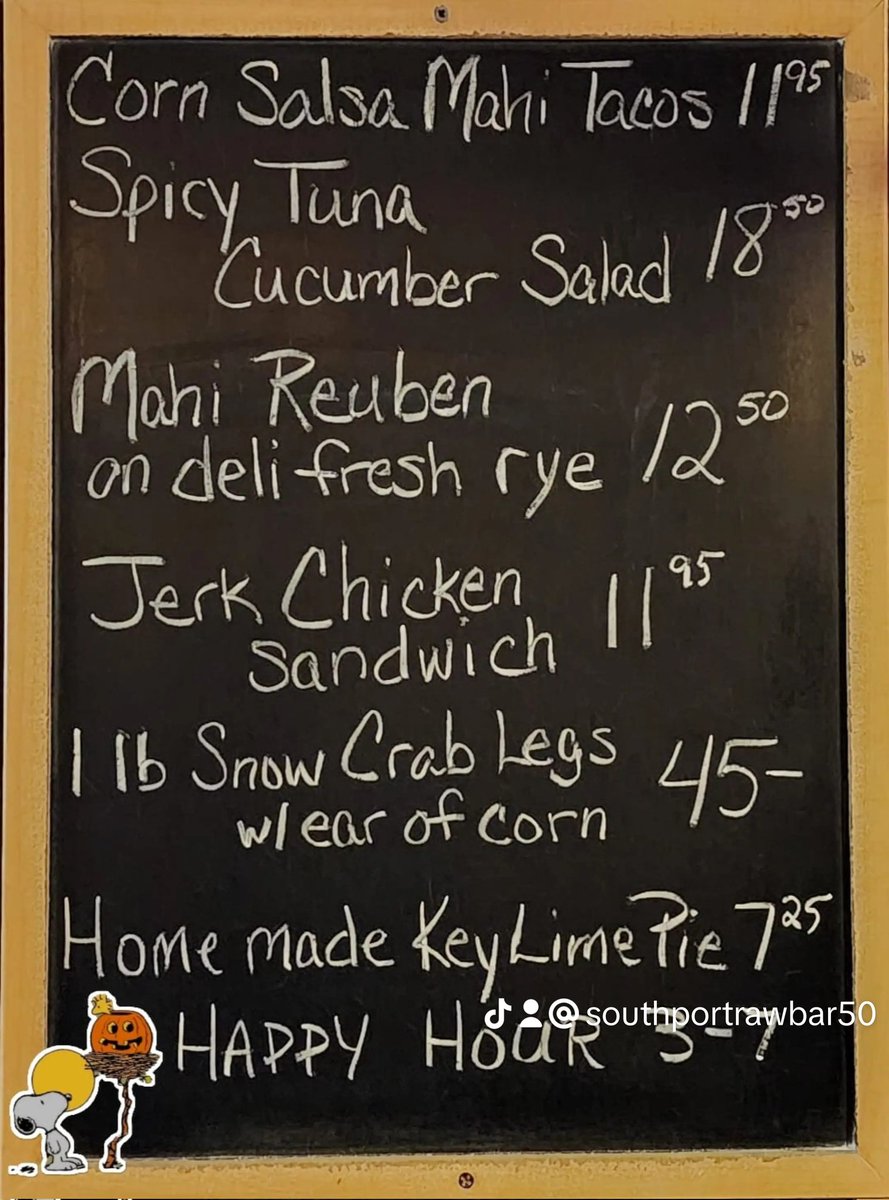 Corn Salsa Mahi Tacos 11 95
Spicy Tuna
Cucumber Salad 18 50
Mahi Reuben
on deli fresh rye 12 50
Jerk Chicken
sandwich 11 95
1 lb Snow Crab Legs
w/ ear of corn 45-
Home made Key Lime Pie 7 25
@southportrawbar50
HAPPY HOUR 3-7